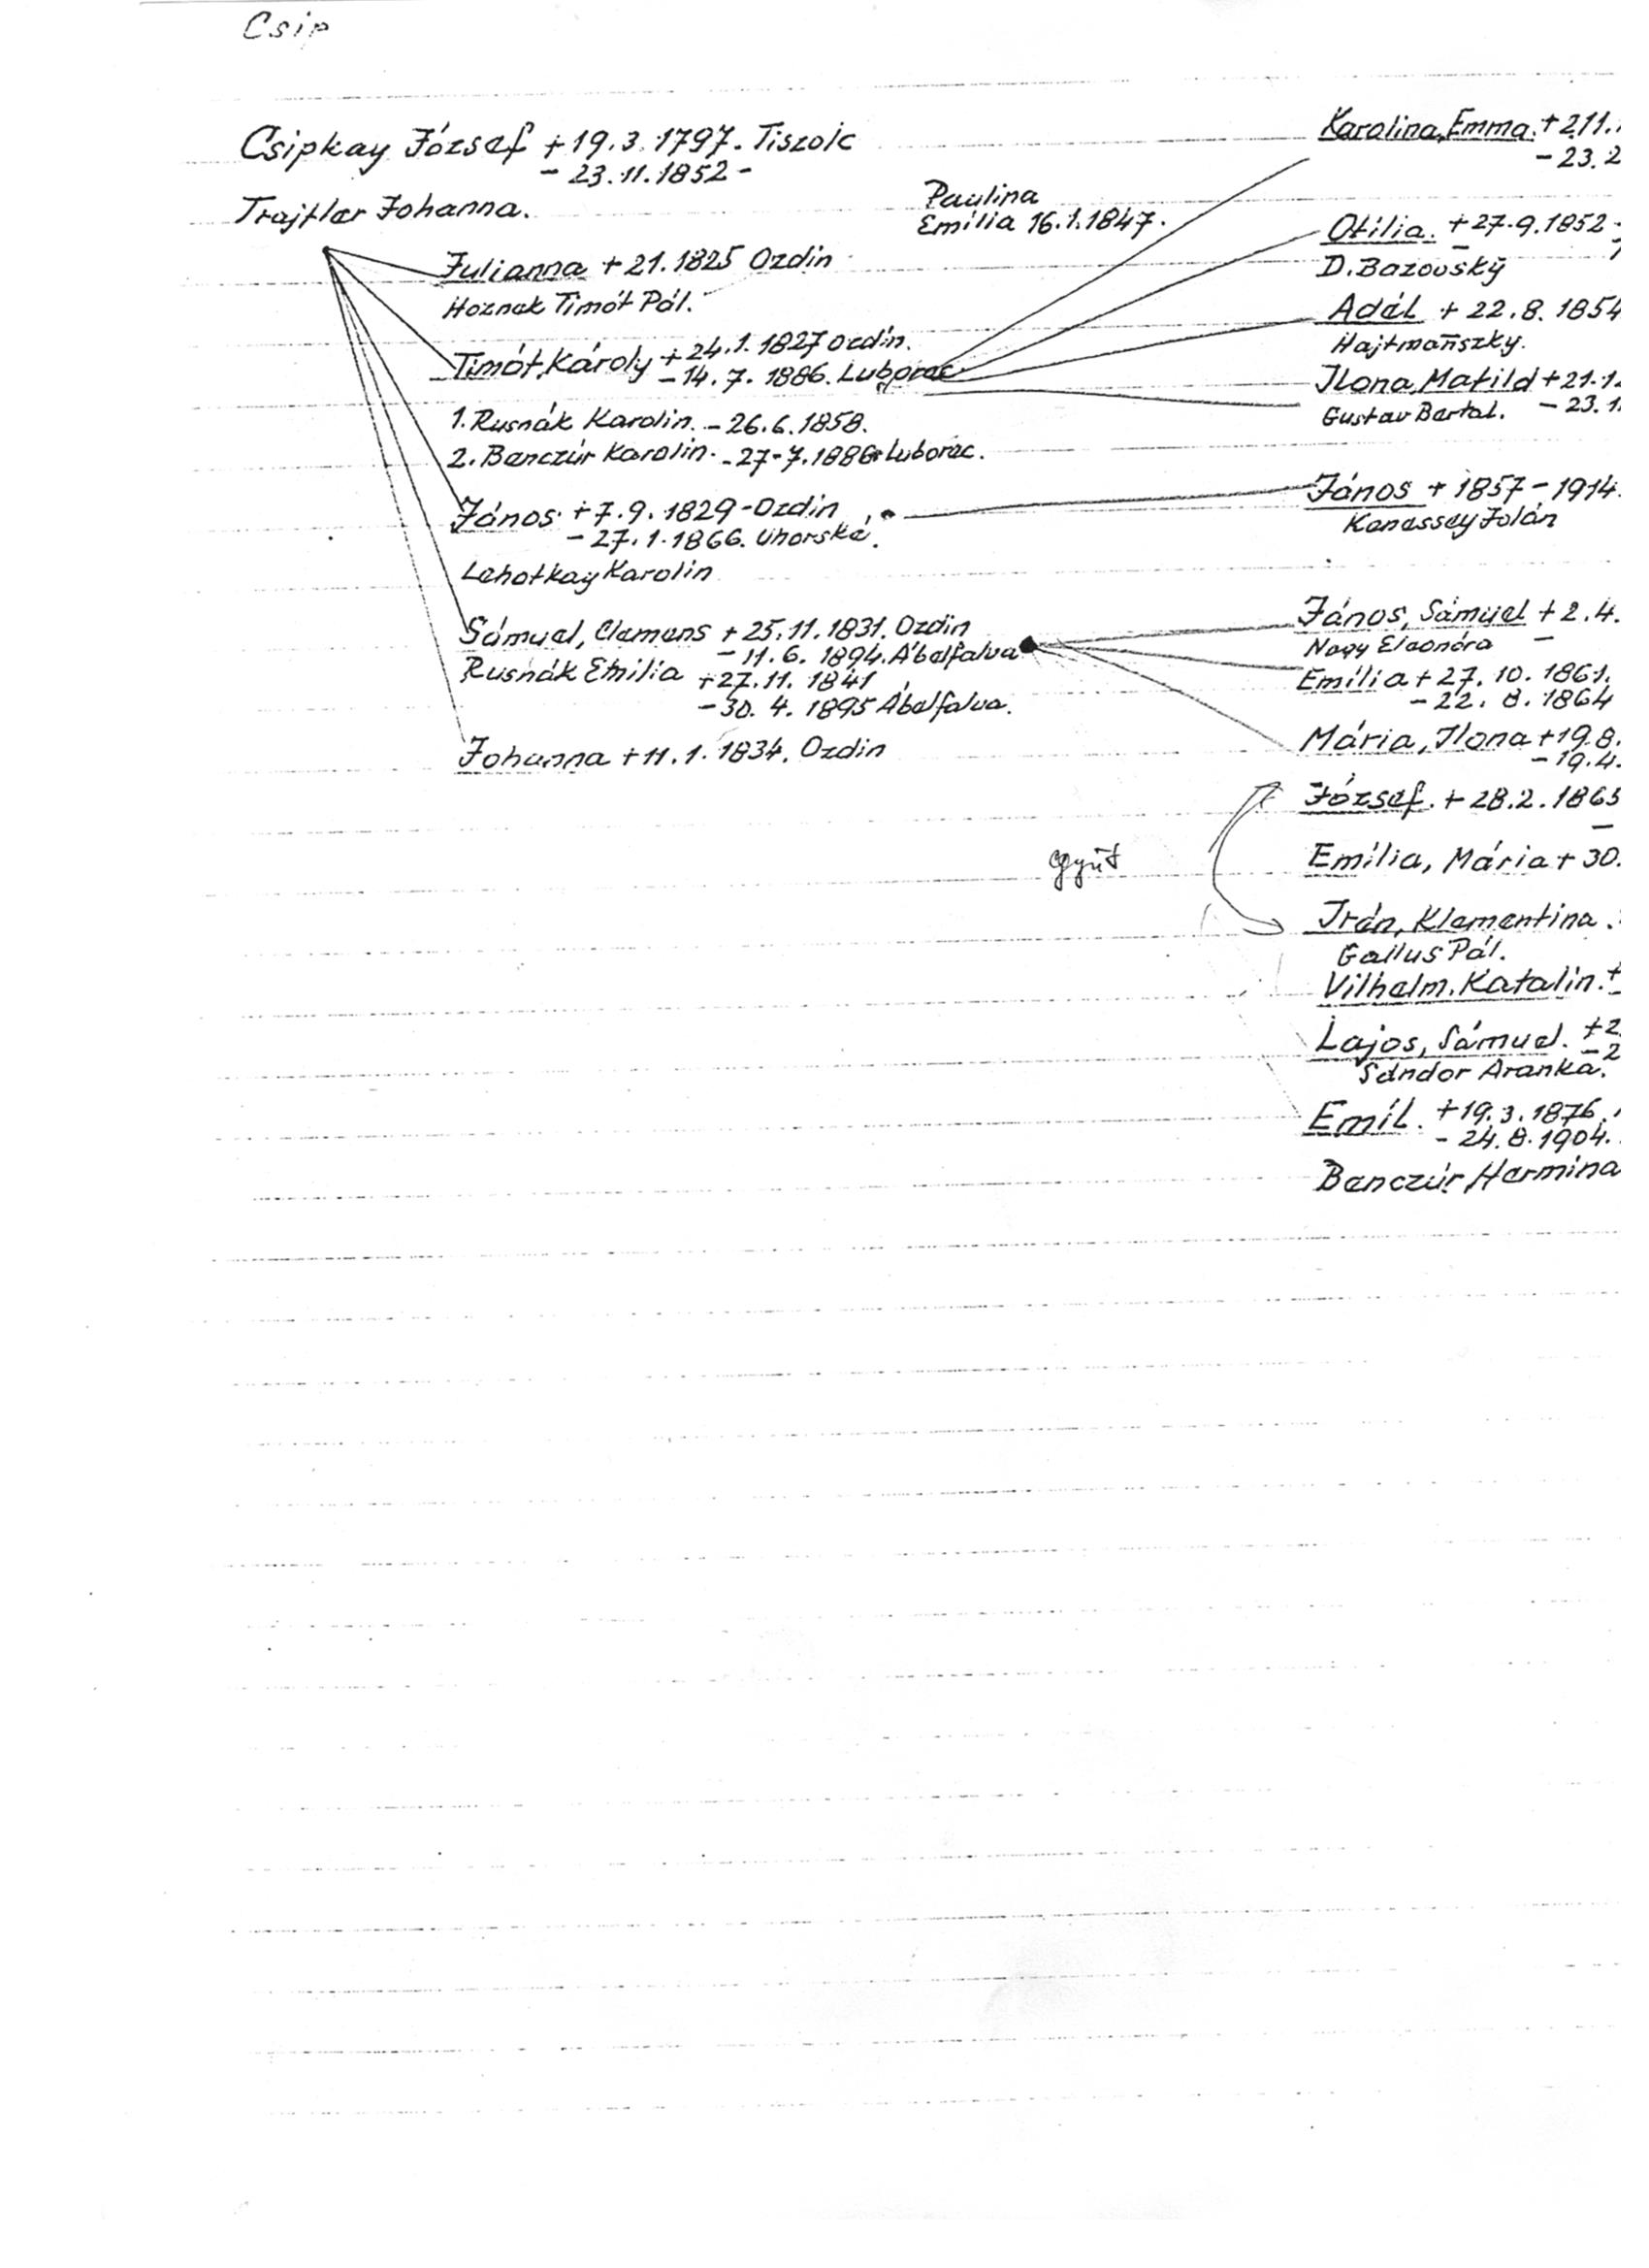 Csip
Csipkay József + 19.3.1797. Tiszolc
- 23.11.1852 -
Trajtler Johanna.
Paulina
Emília 16.1.1847.
Julianna + 21.1825 Ozdin
Hoznek Timót Pál.
Timót, Károly + 24.1.1827 Ozdin.
- 14.7.1886. Luborec
1. Rusnák Karolin. - 26.6.1858.
2. Benczúr Karolin. - 27.7.1886 Luborec.
János + 7.9.1829 - Ozdin
- 27.1.1866. Uhorské.
Lehotkay Karolin
Sámuel, Clemens + 25.11.1831. Ozdin
- 11.6.1894. Ábelfalva
Rusnák Emília + 27.11.1841
- 30.4.1895 Ábelfalva.
Johanna + 11.1.1834. Ozdin
Karolina, Emma. + 2.11.
- 23.2
Otília. + 27.9.1852 -
D. Bazovský
Adél + 22.8.1854
Hajtmanszky.
Ilona, Matild + 21.1
Gustav Bartal. - 23.1
János + 1857 - 1914.
Kenessey Jolán
János, Sámuel + 2.4.
Nagy Eleonóra -
Emília + 27.10.1861.
- 22.8.1864
Mária, Ilona + 19.8.
- 19.4.
József. + 28.2.1865
-
együt
Emília, Mária + 30.
Irén, Klementina.
Gallus Pál.
Vilhelm, Katalin. +
Lajos, Sámuel. + 2
- 2
Sándor Aranka.
Emíl. + 19.3.1876.
- 24.8.1904.
Benczúr Hermina